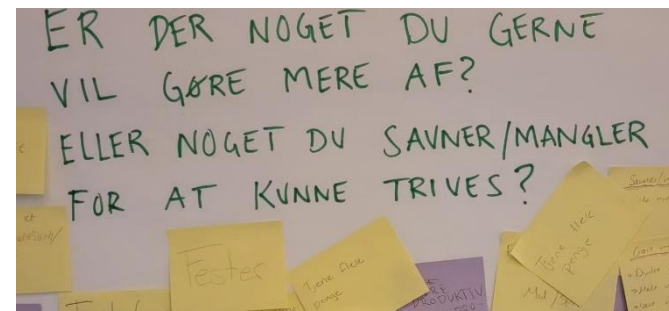 ER DER NOGET DU GERNE
VIL GØRE MERE AF?
ELLER NOGET DU SAVNER/MANGLER
FOR AT KUNNE TRIVES?
Fester
Tjene flere
penge
Tjene flere
penge
PRODUKTIV